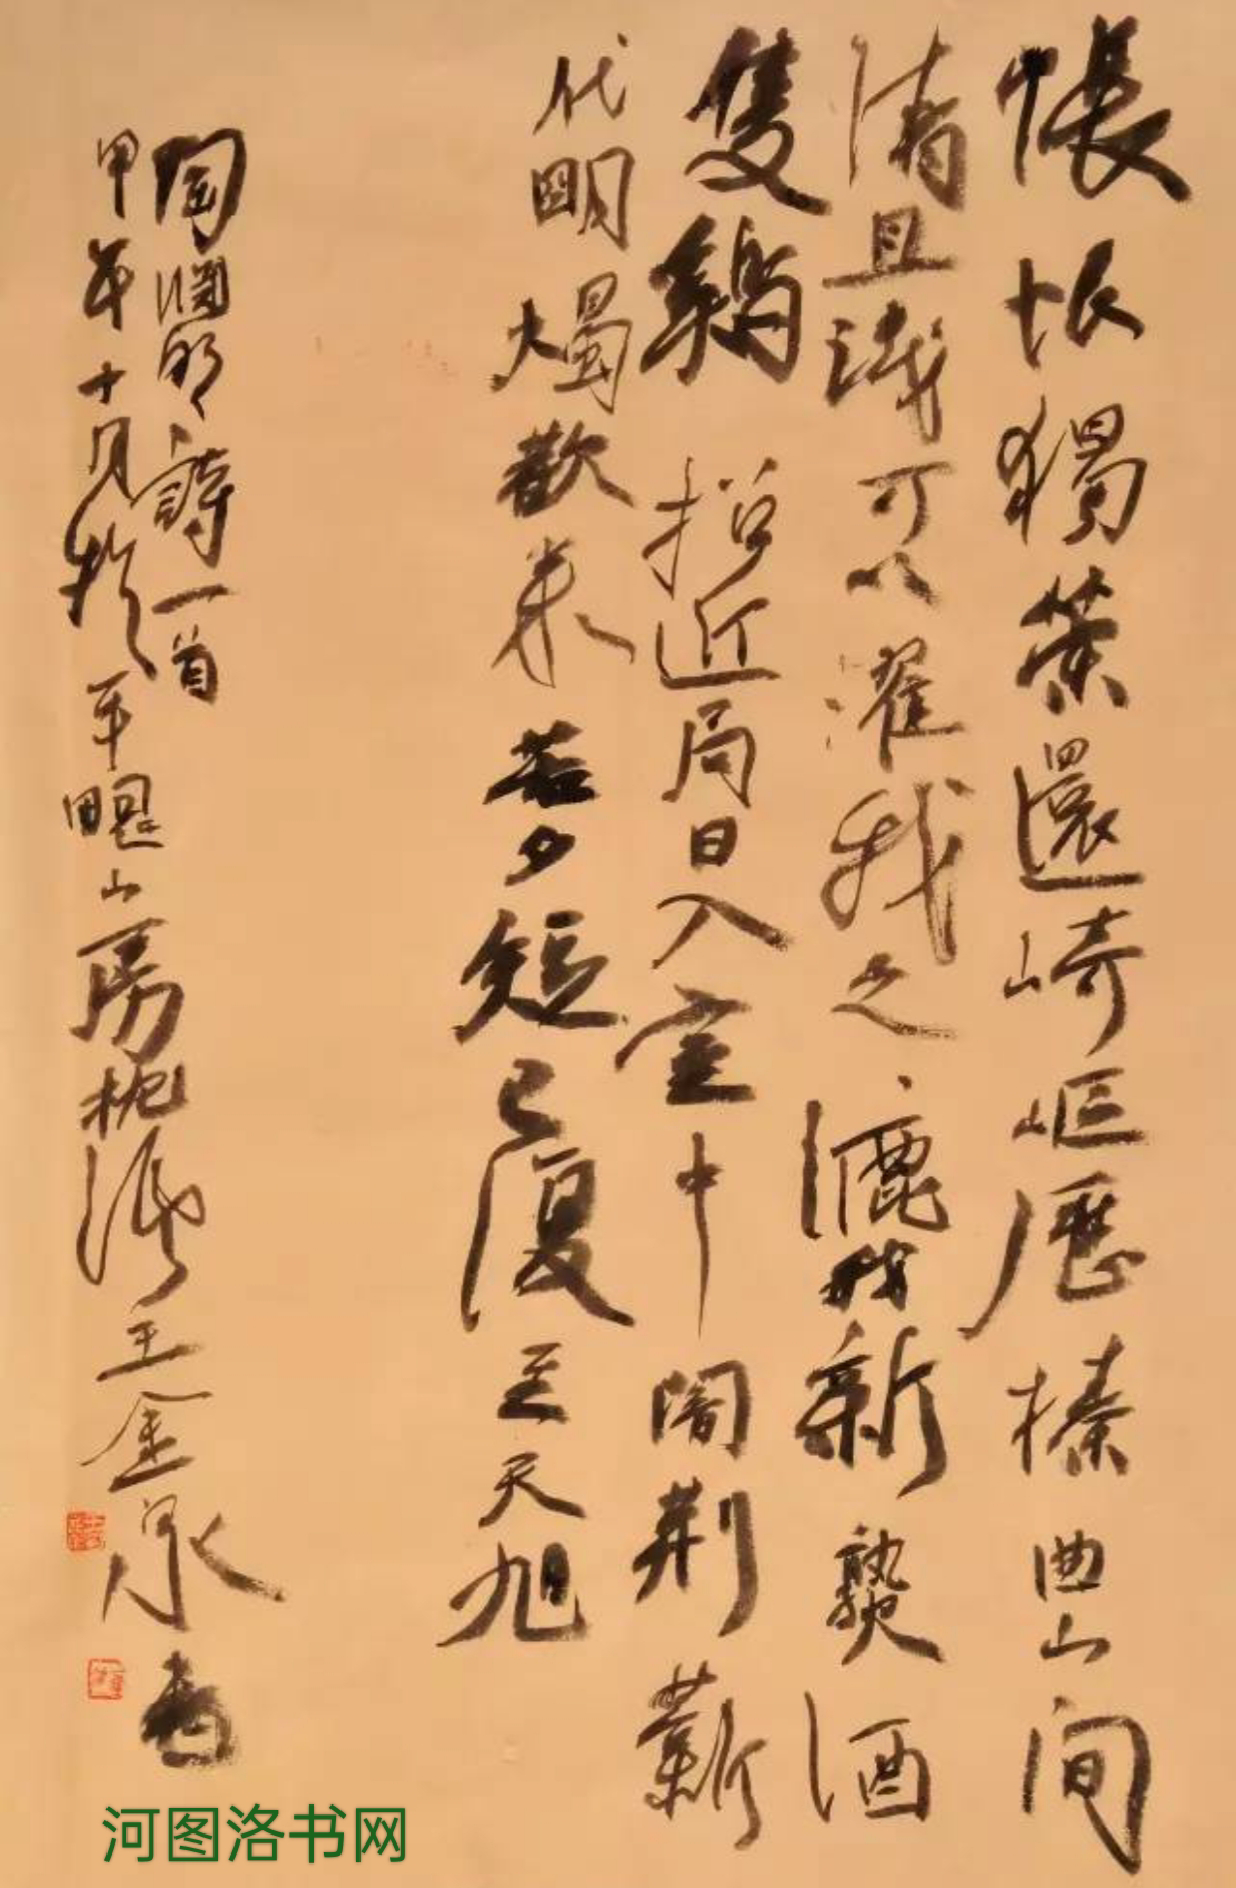 悵恨獨策還崎嶇歷榛曲山澗
清且淺可以濯我足漉我新熟酒
隻鷄招近局日入室中闇荆薪
代明燭歡來苦夕短已復至天旭
陶淵明詩一首
甲午十月於平山房枕濤王金泉書
河图洛书网